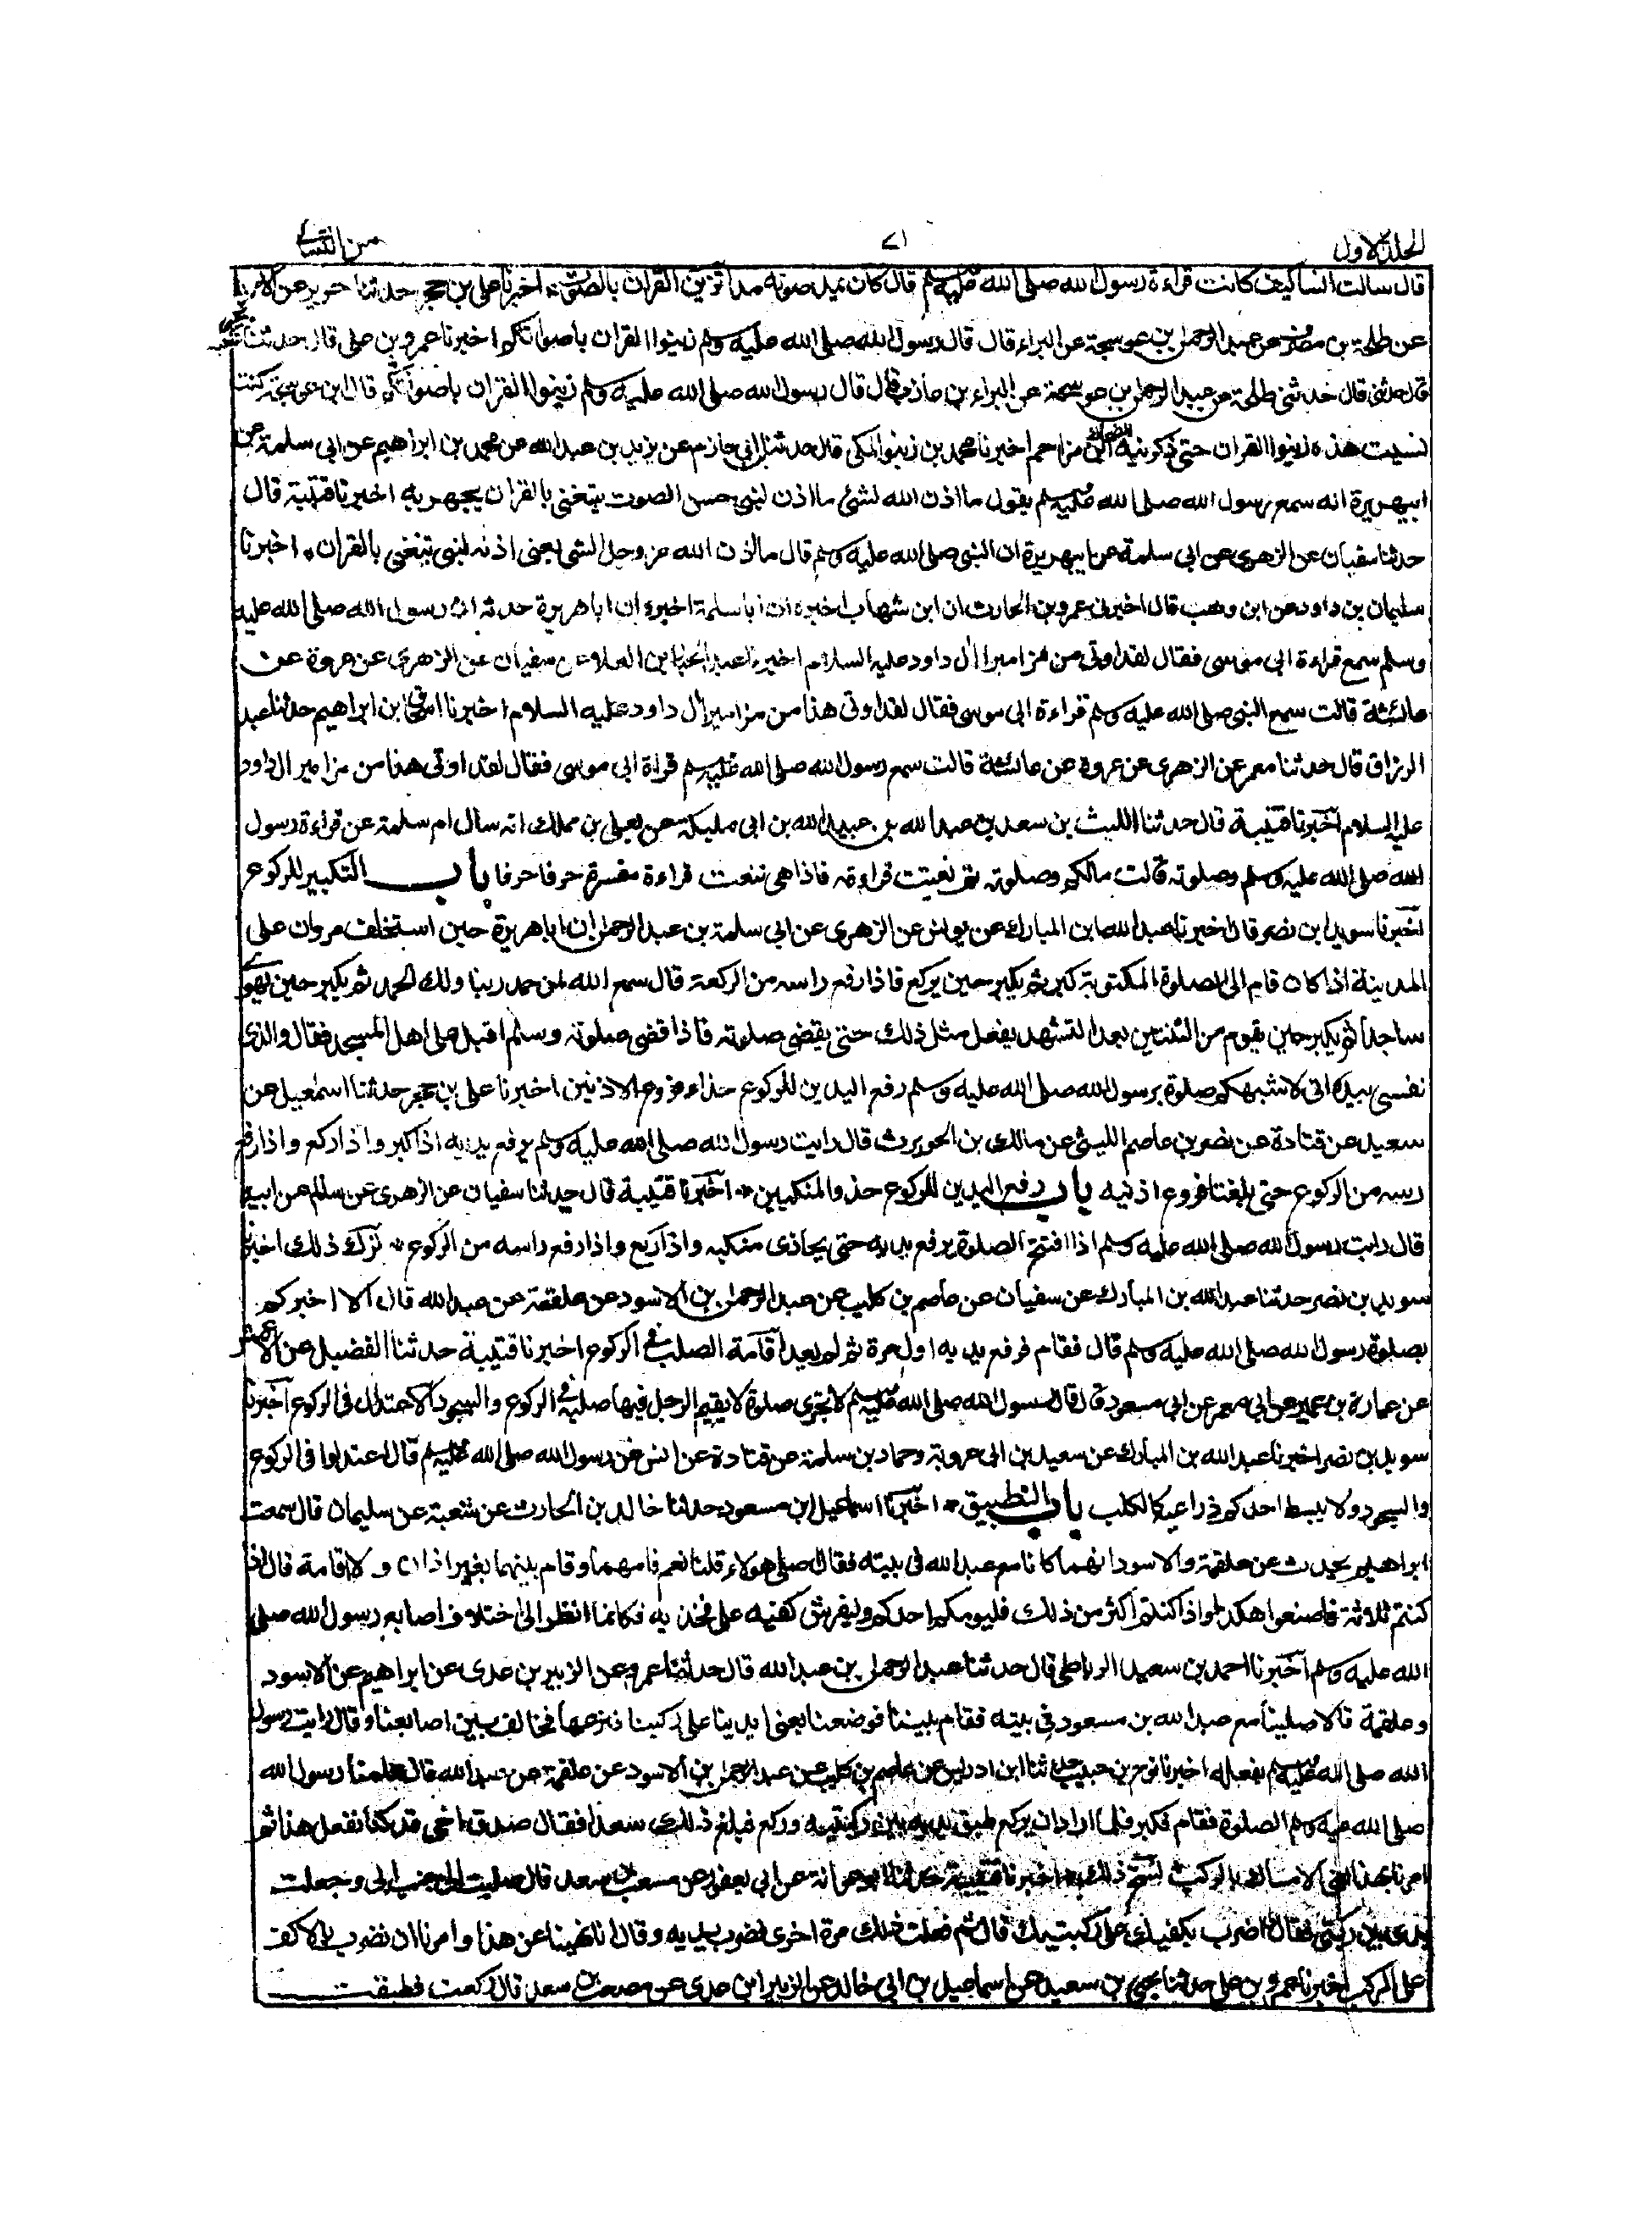 الجلد الاول
٧١
من النسائي
قال سالت انسا كيف كانت قراءة رسول الله صلى الله عليه وسلم قال كان يمد صوته مدا تزيين القران بالصوت اخبرنا علي بن حجر حدثنا جرير عن الاعمش
عن طلحة بن مصرف عن عبد الرحمن بن عوسجة عن البراء قال قال رسول الله صلى الله عليه وسلم زينوا القران باصواتكم اخبرنا عمرو بن على قال حدثنا يحيى
قال حدثني طلحة عن عبد الرحمن بن عوسجة عن البراء بن عازب قال قال رسول الله صلى الله عليه وسلم زينوا القران باصواتكم قال ابن عوسجة كنت
نسيت هذه زينوا القران حتى ذكرنيه الضحاك بن مزاحم اخبرنا محمد بن زنبور المكى قال حدثنا ابن ابي حازم عن يزيد بن عبد الله عن محمد بن ابراهيم عن ابي سلمة عن
ابيهريرة انه سمع رسول الله صلى الله عليه وسلم يقول ما اذن الله لشئ ما اذن لنبي حسن الصوت يتغنى بالقران يجهر به اخبرنا قتيبة قال
حدثنا سفيان عن الزهرى عن ابي سلمة عن ابيهريرة ان النبي صلى الله عليه وسلم قال ما اذن الله عز وجل لشئ يعنى اذنه لنبي يتغنى بالقران * اخبرنا
سليمان بن داود عن ابن وهب قال اخبرنى عمرو بن الحارث ان ابن شهاب اخبره ان ابا سلمة اخبره ان ابا هريرة حدثه ان رسول الله صلى الله عليه
وسلم سمع قراءة ابى موسى فقال لقد اوتى من مزامير ال داود عليه السلام اخبرنا عبد الجبار بن العلاء عن سفيان عن الزهري عن عروة عن
عائشة قالت سمع النبي صلى الله عليه وسلم قراءة ابى موسى فقال لقد اوتى هذا من مزامير ال داود عليه السلام اخبرنا اسحق بن ابراهيم حدثنا عبد
الرزاق قال حدثنا معمر عن الزهرى عن عروة عن عائشة قالت سمع رسول الله صلى الله عليه وسلم قراءة ابى موسى فقال لقد اوتى هذا من مزامير ال داود
عليه السلام اخبرنا قتيبة قال حدثنا الليث بن سعد بن عبد الله بن عبيد الله بن ابي مليكة عن يعلى بن مملك انه سال ام سلمة عن قراءة رسول
الله صلى الله عليه وسلم وصلوته قالت مالكم وصلوته ثم نعتت قراءته فاذا هي تنعت قراءة مفسرة حرفا حرفا باب التكبير للركوع
اخبرنا سويد ابن نصر قال اخبرنا عبد الله ابن المبارك عن يونس عن الزهرى عن ابي سلمة بن عبد الرحمن ان ابا هريرة حين استخلف مروان على
المدينة اذا كان قام الى الصلوة المكتوبة كبر ثم يكبر حين يركع فاذا رفع راسه من الركعة قال سمع الله لمن حمده ربنا ولك الحمد ثم يكبر حين يهوي
ساجدا ثم يكبر حين يقوم من الثنتين بعد التشهد يفعل مثل ذلك حتى يقضى صلوته فاذا قضى صلوته وسلم اقبل على اهل المسجد فقال والذى
نفسى بيده انى لاشبهكم صلوة برسول الله صلى الله عليه وسلم رفع اليدين للركوع حذاء فروع الاذنين اخبرنا على بن حجر حدثنا اسمعيل عن
سعيد عن قتادة عن نصر بن عاصم الليثى عن مالك بن الحويرث قال رايت رسول الله صلى الله عليه وسلم يرفع يديه اذا كبر واذا ركع واذا رفع
راسه من الركوع حتى بلغتا فروع اذنيه باب رفع اليدين للركوع حذو المنكبين * اخبرنا قتيبة قال حدثنا سفيان عن الزهرى عن سالم عن ابيه
قال رايت رسول الله صلى الله عليه وسلم اذا افتتح الصلوة يرفع يديه حتى يحاذى منكبيه واذا ركع واذا رفع راسه من الركوع * ترك ذلك اخبرنا
سويد بن نصر حدثنا عبد الله بن المبارك عن سفيان عن عاصم بن كليب عن عبد الرحمن بن الاسود عن علقمة عن عبد الله قال الا اخبركم
بصلوة رسول الله صلى الله عليه وسلم قال فقام فرفع يديه اول مرة ثم لم يعد اقامة الصلب في الركوع اخبرنا قتيبة حدثنا الفضيل عن الاعمش
عن عمارة بن عمير عن ابى معمر عن ابى مسعود قال قال رسول الله صلى الله عليه وسلم لا تجزى صلوة لا يقيم الرجل فيها صلبه في الركوع والسجود الاعتدال في الركوع اخبرنا
سويد بن نصر اخبرنا عبد الله بن المبارك عن سعيد بن ابى عروبة وحماد بن سلمة عن قتادة عن انس عن رسول الله صلى الله عليه وسلم قال اعتدلوا فى الركوع
والسجود ولا يبسط احدكم ذراعيه كالكلب باب التطبيق * اخبرنا اسماعيل ابن مسعود حدثنا خالد بن الحارث عن شعبة عن سليمان قال سمعت
ابراهيم يحدث عن علقمة والاسود انهما كانا مع عبد الله في بيته فقال صلى هؤلاء قلنا نعم فامهما وقام بينهما بغير اذان ولا اقامة قال اذا
كنتم ثلاثة فاصنعوا هكذا واذا كنتم اكثر من ذلك فليؤمكم احدكم وليفرش كفيه على فخذيه فكانما انظر الى اختلاف اصابع رسول الله صلى
الله عليه وسلم اخبرنا احمد بن سعيد الرباطى قال حدثنا عبد الرحمن بن عبد الله قال حدثنا عمرو عن الزبير بن عدى عن ابراهيم عن الاسود
وعلقمة قالا صلينا مع عبد الله بن مسعود في بيته فقام بيننا فوضعنا يعنى ايدينا على ركبنا فنزعها فخالف بين اصابعنا وقال رايت رسول
الله صلى الله عليه وسلم يفعله اخبرنا نوح بن حبيب حدثنا ابن ادريس عن عاصم بن كليب عن عبد الرحمن بن الاسود عن علقمة عن عبد الله قال علمنا رسول الله
صلى الله عليه وسلم الصلوة فقام فكبر فلما اراد ان يركع طبق يديه بين ركبتيه وركع فبلغ ذلك سعدا فقال صدق اخى قد كنا نفعل هذا ثم
امرنا بهذا يعنى الامساك بالركب نسخ ذلك * اخبرنا قتيبة حدثنا ابو عوانة عن ابي يعفور عن مصعب بن سعد قال صليت الى جنب ابى وجعلت
يدى بين ركبتي فقال اضرب بكفيك على ركبتيك قال ثم فعلت ذلك مرة اخرى فضرب يديه وقال انا نهينا عن هذا وامرنا ان نضرب بالاكف
على الركب اخبرنا عمرو بن على حدثنا يحيى بن سعيد عن اسماعيل بن ابى خالد عن الزبير ابن عدى عن مصعب بن سعد قال ركعت فطبقت